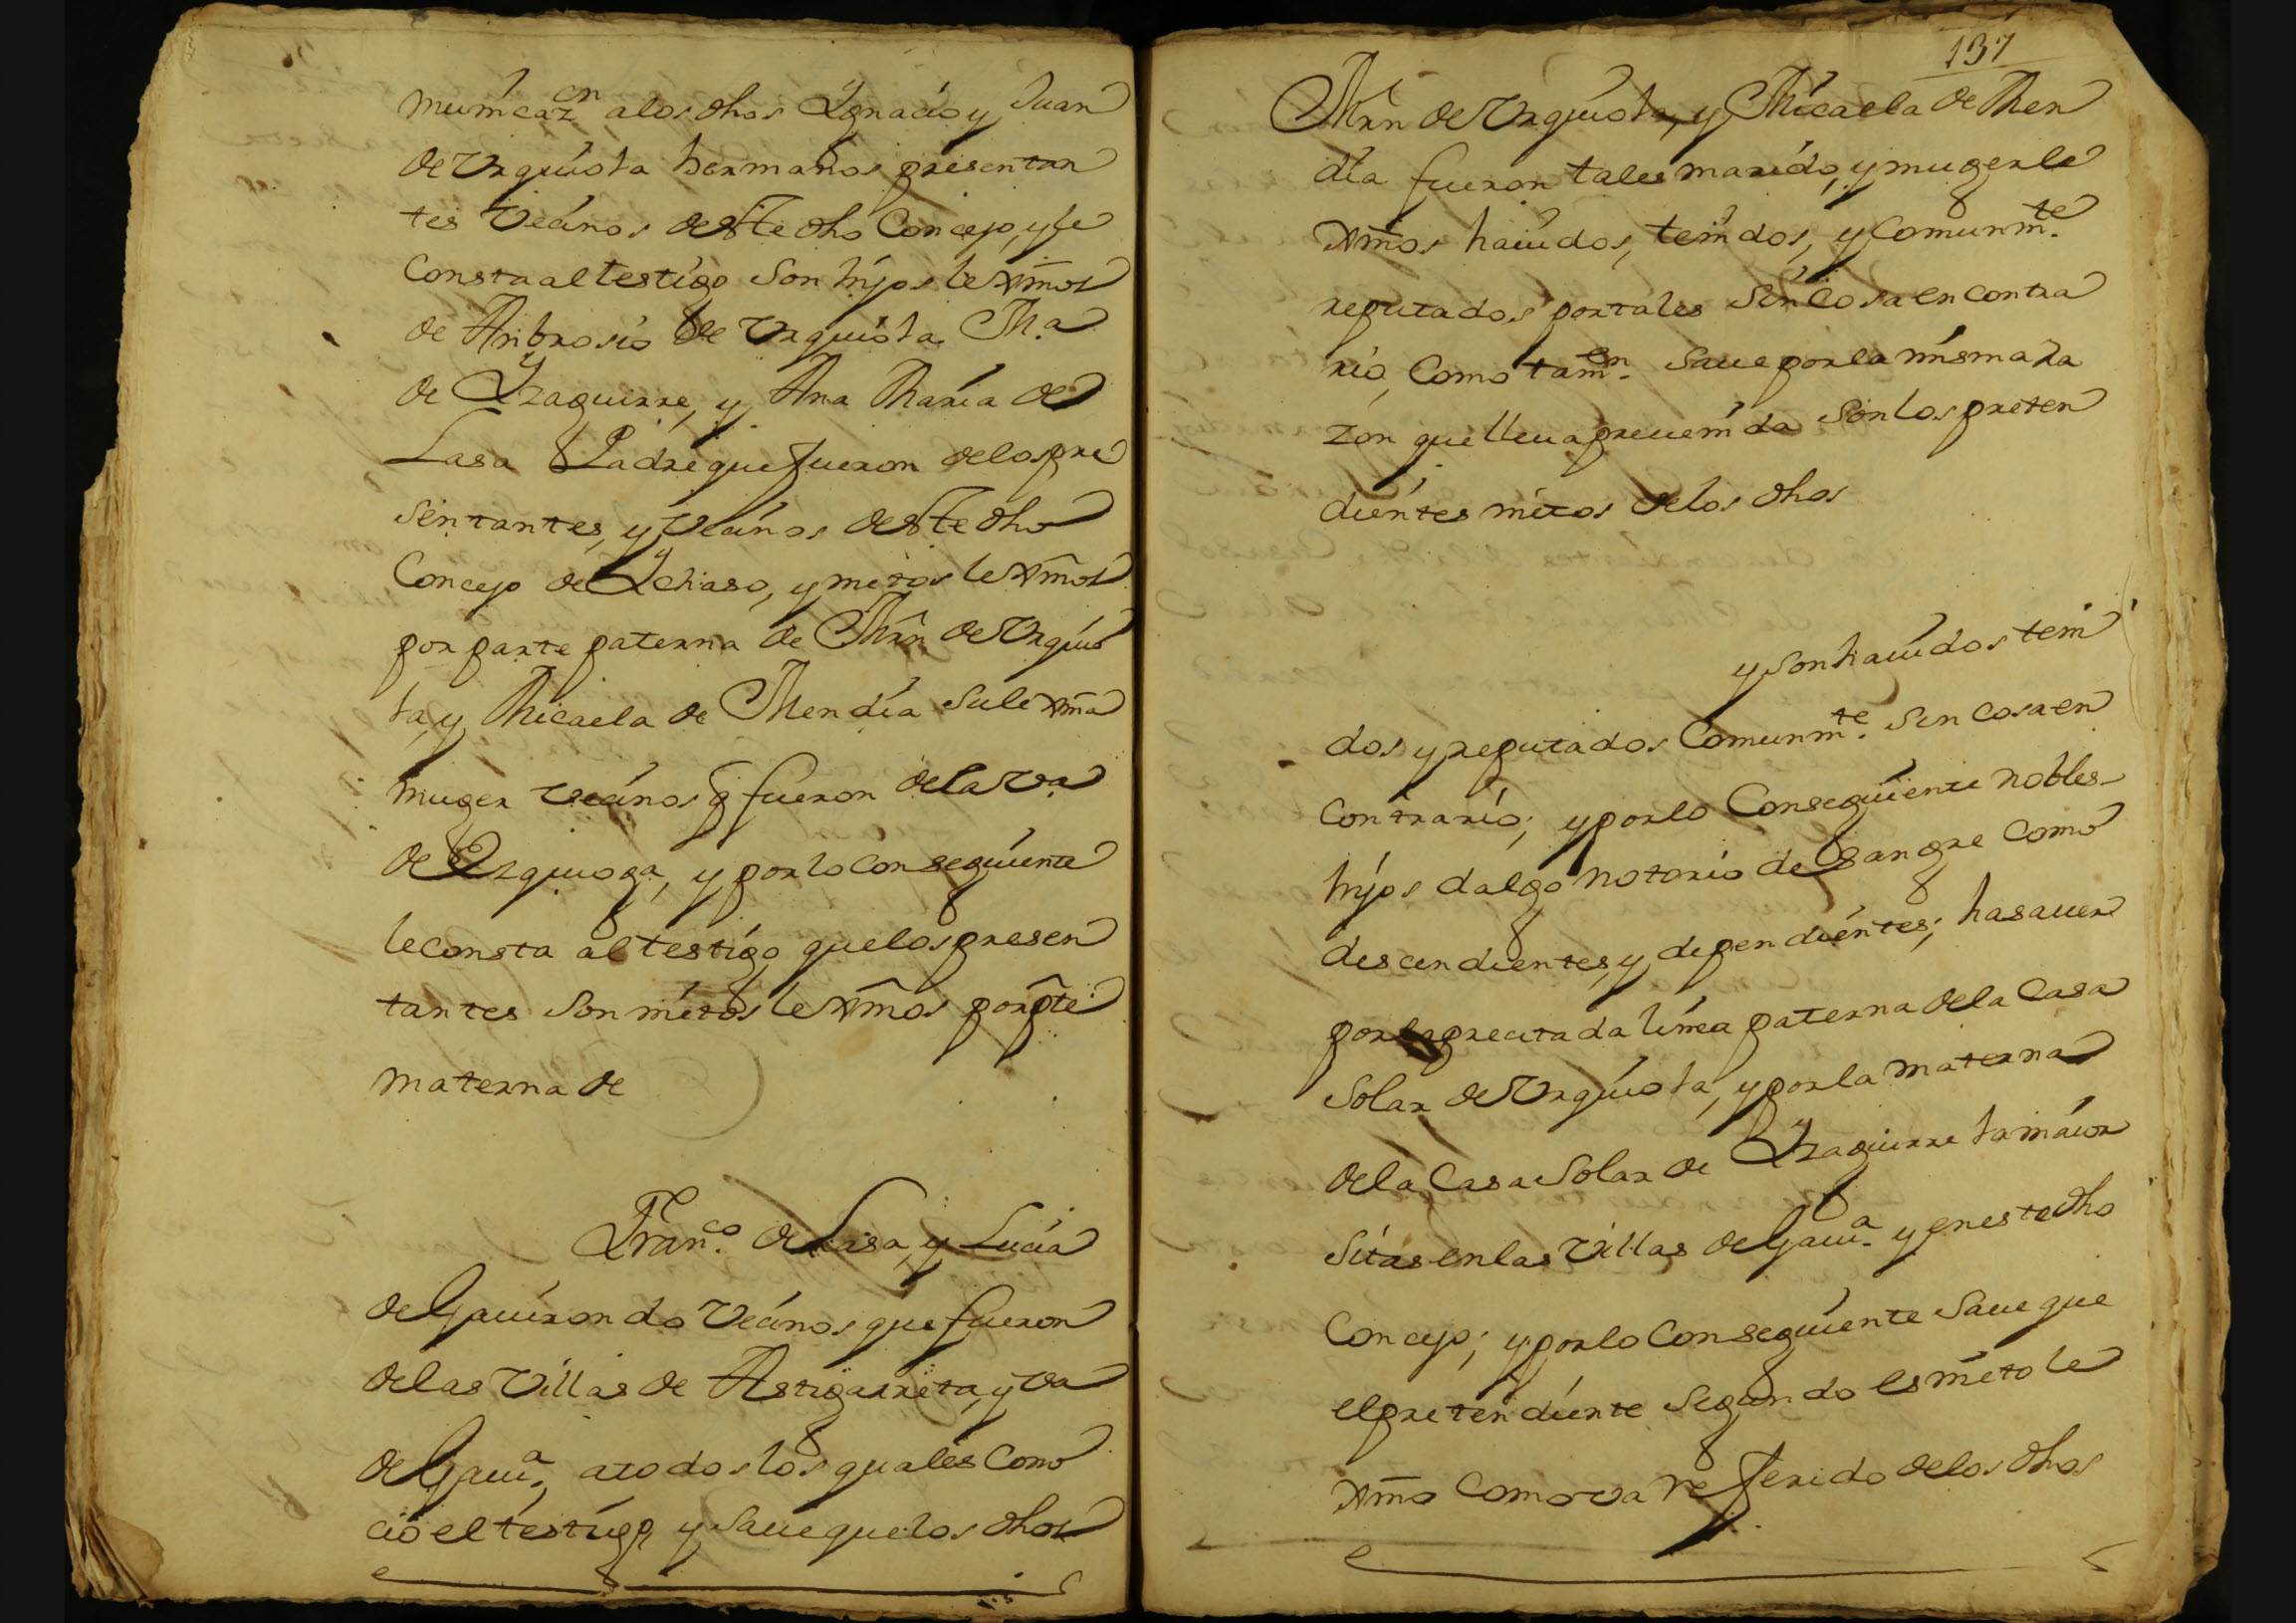 municazn alos dhos Ygnacio y Juan
de Urquiola hermanos presentan
tes Vecinos deste dho Concejo, y le
Consta al testigo Son hijos lexmos
de Ambrosio de Urquiola M.a
de Yzaguirre, y Ana Maria de
Lasa Padre que fueron delos pre
sentantes, y Vecinos deste dho
Concejo de Ychaso, y nietos lexmos
por parte paterna de Mrn de Urquio
la, y Micaela de Mendia Su lexma
muger vecinos q fueron dela va
de Ezquioga, y por lo conseguiente
le consta al testigo que los presen
tantes Son nietos lexmos por pte
materna de
Fran.co de Lasa, y Lucia
de Gauirondo Vecinos que fueron
delas Villas de Astigarreta, y va
de Gaui.a, atodos los quales Cono
cio el testigo, y Saue que los dhos
137
Mrn de Urquiola, y Micaela de Men
dia fueron tales marido, y muger le
xmos hauidos, tenidos, y Comunm.te
reputados por tales Sin Cosa en contra
rio, Como tamn. Saue por la misma ra
zon que lleua preuenida Son los preten
dientes nietos delos dhos
y Son hauidos teni
dos y reputados Comunm.te Sin Cosa en
Contrario; y por lo Conseguiente nobles
hijos dalgo notorio de Sangre Como
descendientes, y dependientes; hasauer
por la precitada linea paterna dela Casa
Solar de Urquiola, y por la materna
dela Casa Solar de Yzaguirre la maior
Sitas en las Villas de Gaui.a y en este dho
Concejo; y por lo Conseguiente Saue que
el pretendiente Segundo es nieto le
xmo Como va referido delos dhos